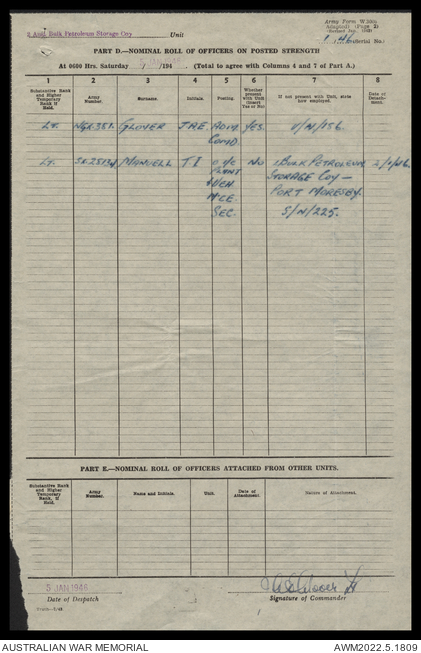 2 Aust Bulk Petroleum Storage Coy Unit
Army Form W.3008
Adapted) (Page 2)
(Revised Jan. 1943)
1/46 (Serial No.)
PART D.—NOMINAL ROLL OF OFFICERS ON POSTED STRENGTH
At 0600 Hrs. Saturday 5 JAN 1946 /194 . (Total to agree with Columns 4 and 7 of Part A.)
1 2 3 4 5 6 7 8
Substantive Rank and Higher Temporary Rank, if Held. Army Number. Surname. Initials. Posting. Whether present with Unit (Insert Yes or No) If not present with Unit, state how employed. Date of Detachment.
Lt. GLOVER ADM. YES. V/N/156.
COMD.
Lt. MANUELL T I O i/c No 1 BULK PETROLEUM 2/1/46.
PLANT STORAGE COY —
& VEH. PORT MORESBY.
MCE
SEC. S/N/225.
PART E.—NOMINAL ROLL OF OFFICERS ATTACHED FROM OTHER UNITS.
Substantive Rank and Higher Temporary Rank, if Held. Army Number. Name and Initials. Unit. Date of Attachment. Nature of Attachment.
5 JAN 1946
Date of Despatch Signature of Commander
AUSTRALIAN WAR MEMORIAL AWM2022.5.1809